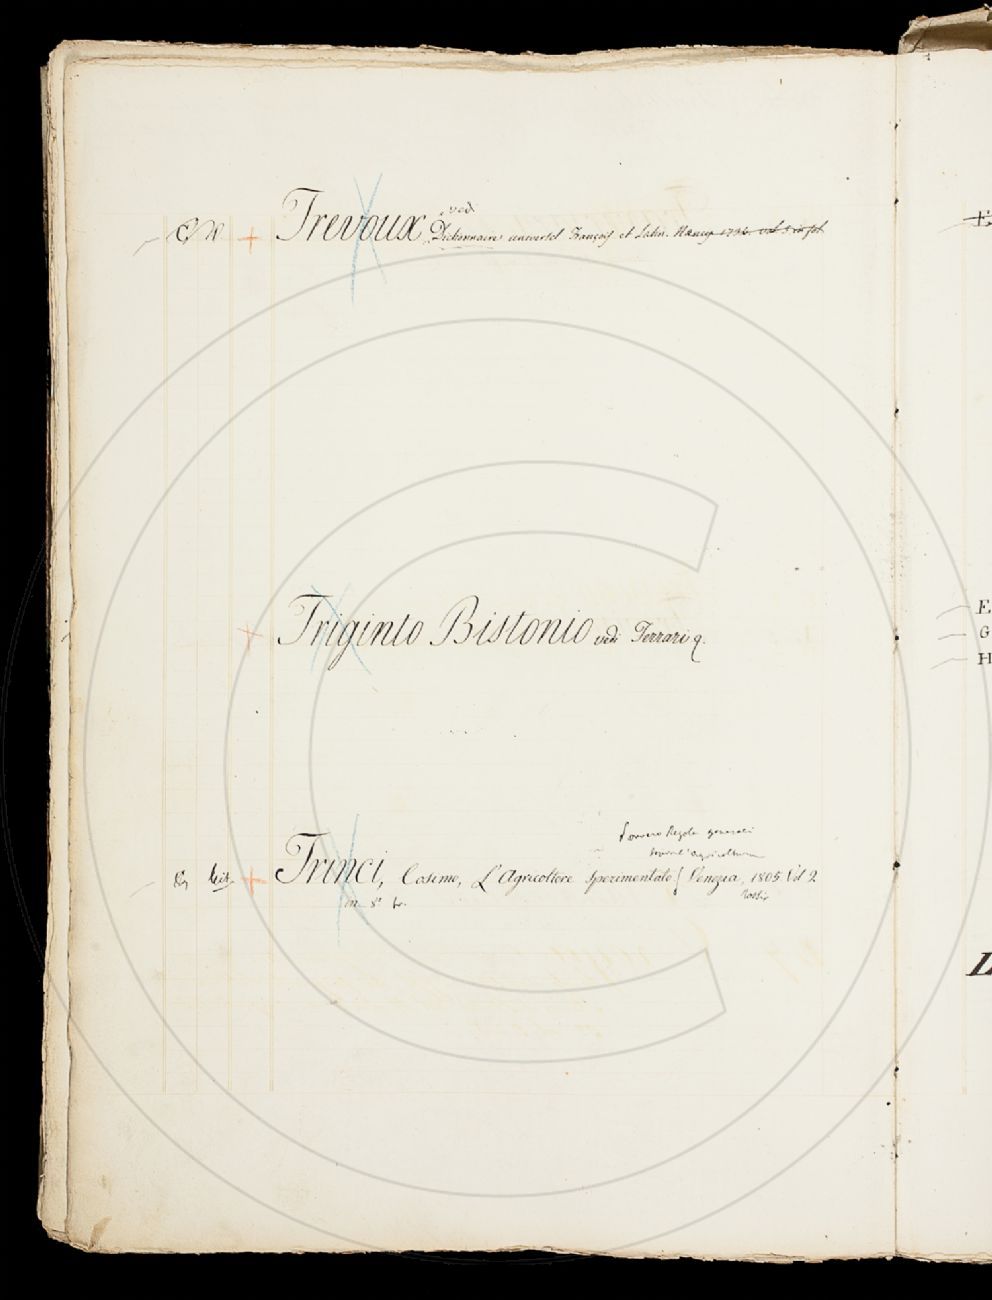 vedi
Trevoux Dictionnaire universel François et Latin. Nancy 1736. vol 5 in fol.
E
Triginto Bistonio vedi Ferrari g.
E
G
H
ovvero Regole generali
sovra l'agricoltura
Trinci, Cosimo, L'Agricoltore Sperimentato { Venezia, 1805. Vol 2
in 8°